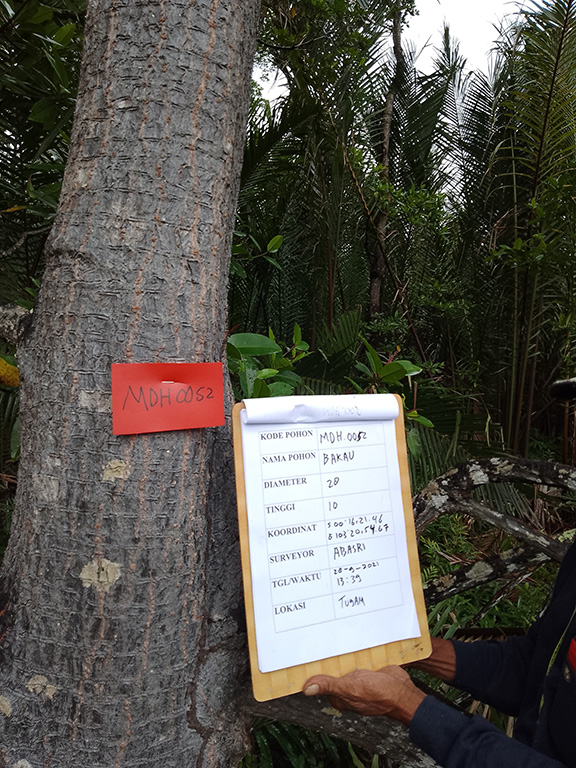 MDH.0052
KODE POHON MDH.0052
NAMA POHON BAKAU
DIAMETER 20
TINGGI 10
KOORDINAT S 00°16'21.46
E 103°20'54.67
SURVEYOR ABASRI
TGL/WAKTU 20-9-2021
13:39
LOKASI